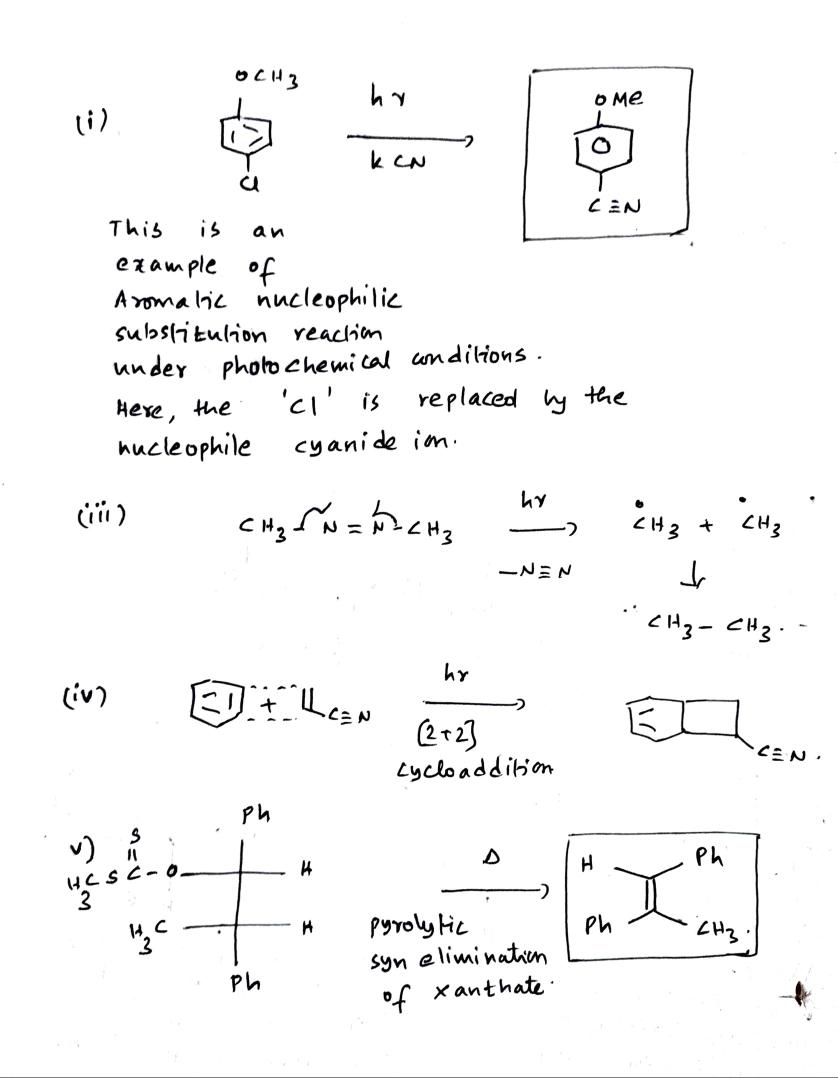 OCH3
(i)
hγ
KCN
Cl
OMe
C≡N
This is an
example of
Aromatic nucleophilic
substitution reaction
under photochemical conditions.
Here, the 'Cl' is replaced by the
nucleophile cyanide ion.
(iii) CH3 N=N-CH3 hγ -N≡N ĊH3 + ĊH3
CH3-CH3
(iv) + C≡N hγ C≡N.
[2+2]
cycloaddition
v) Ph
S
H3CSC-O H
H3C H
Ph
Δ
pyrolytic
syn elimination
of xanthate.
H Ph
Ph CH3.